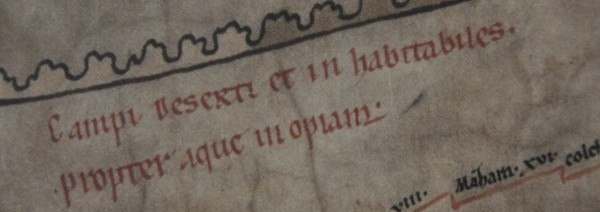 Campi deserti et in habitabiles.
propter aque in opiam:
xiii. Mãham. xvi. colch